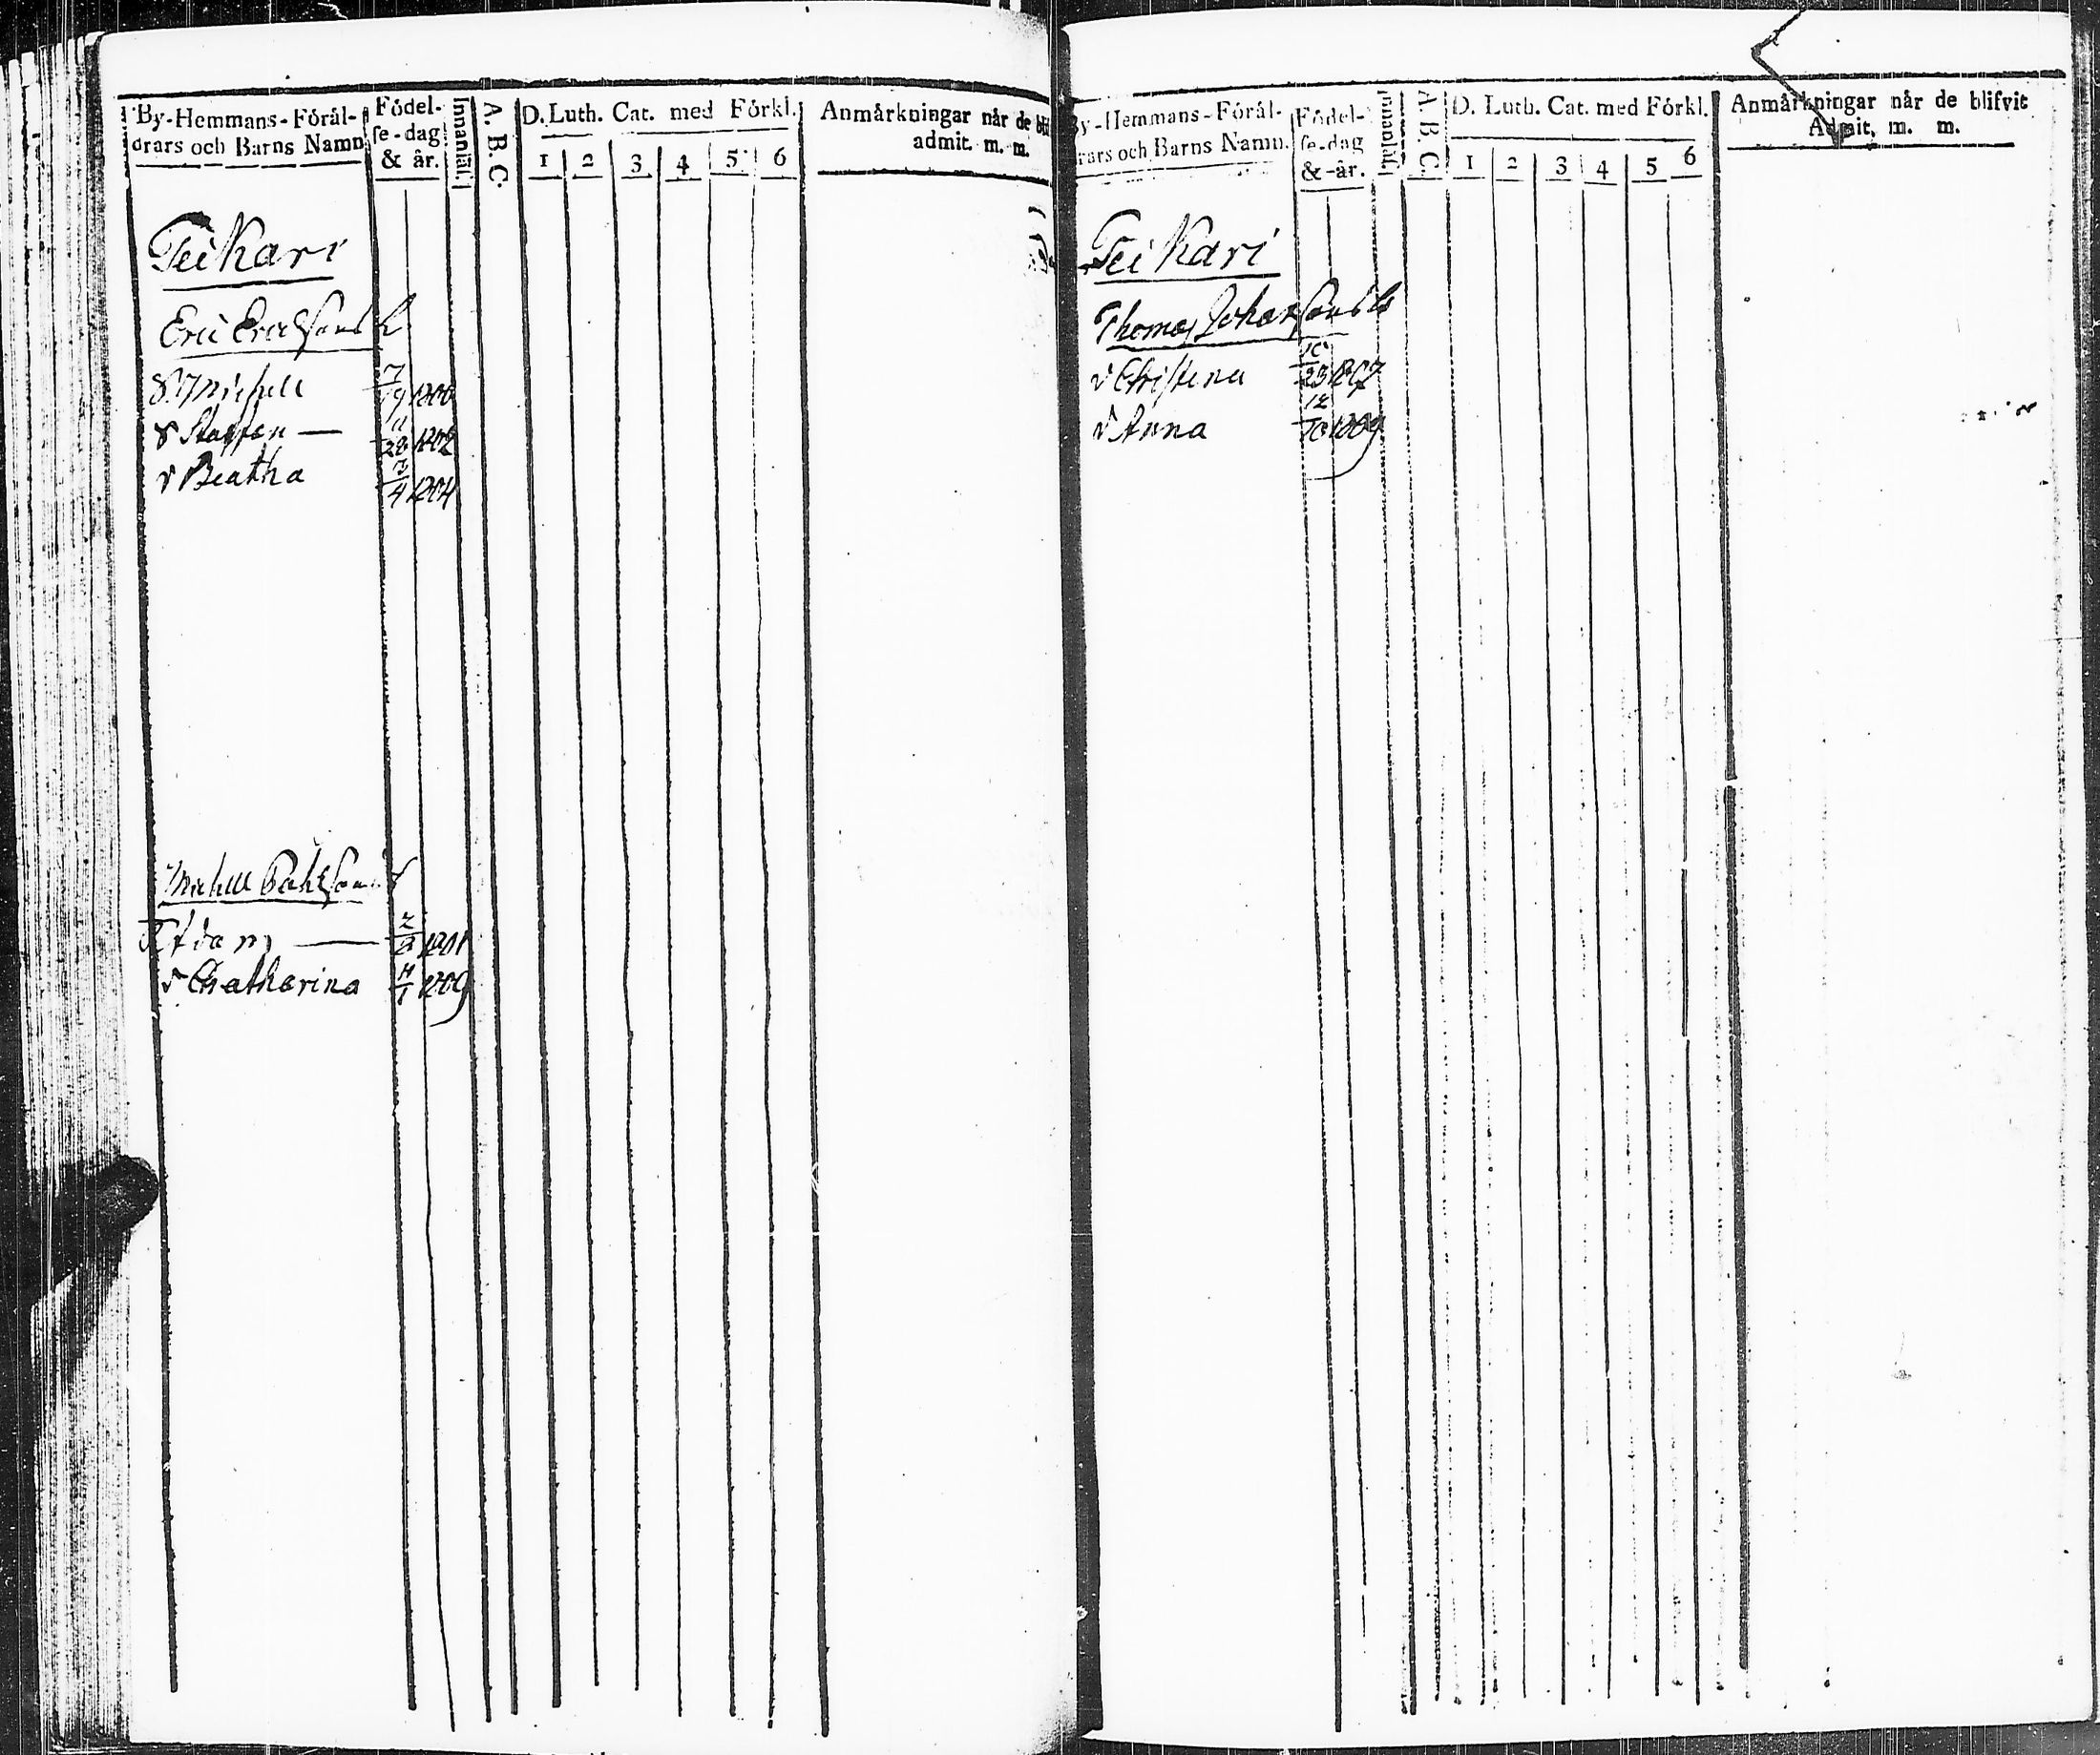 By-Hemmans-Förål-
drars och Barns Namn
Födel-
se-dag
& år.
Innanläs.
A. B. C.
D. Luth. Cat. med Förkl.
1 2 3 4 5 6
Anmårkningar når de bli
admit. m. m.
Teikari
Eric Ericssons
S. Michell 7/19 1800
S Staffan — 11/28 1802
D Beatha 3/4 1804
Michell
Adam — 2/2 1801
D Chatharina 1809
By-Hemmans-Förål-
drars och Barns Namn.
Födel-
se-dag
& år.
Innanläs.
A. B. C.
D. Luth. Cat. med Förkl.
1 2 3 4 5 6
Anmårkningar når de blifvit
Admit, m. m.
Teikari
Thomas Johanssons
D Christina 10/23 1807
D Anna 12/10 1809